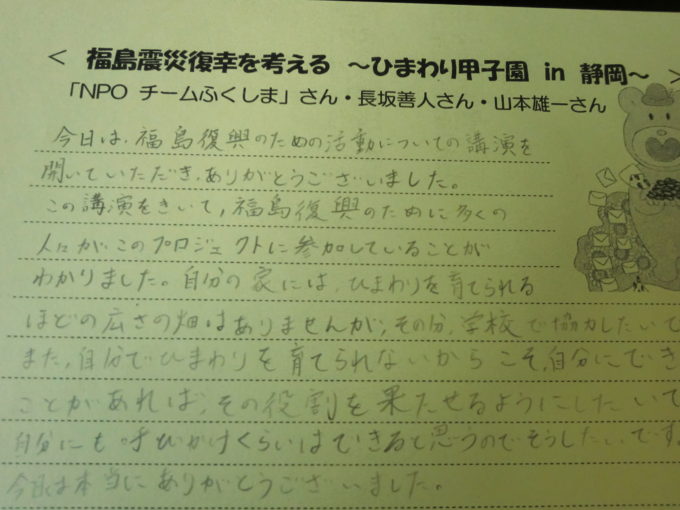 ＜ 福島震災復幸を考える ～ひまわり甲子園 in 静岡～ ＞
「NPO チームふくしま」さん・長坂善人さん・山本雄一さん
今日は、福島復興のための活動についての講演を
開いていただき、ありがとうございました。
この講演をきいて、福島復興のために多くの
人々がこのプロジェクトに参加していることが
わかりました。自分の家には、ひまわりを育てられる
ほどの広さの畑はありませんが、その分、学校で協力したいで
また、自分でひまわりを育てられないからこそ、自分にでき
ことがあれば、その役割を果たせるようにしたいで
自分にも呼びかけくらいはできると思うのでそうしたいです
今日は本当にありがとうございました。